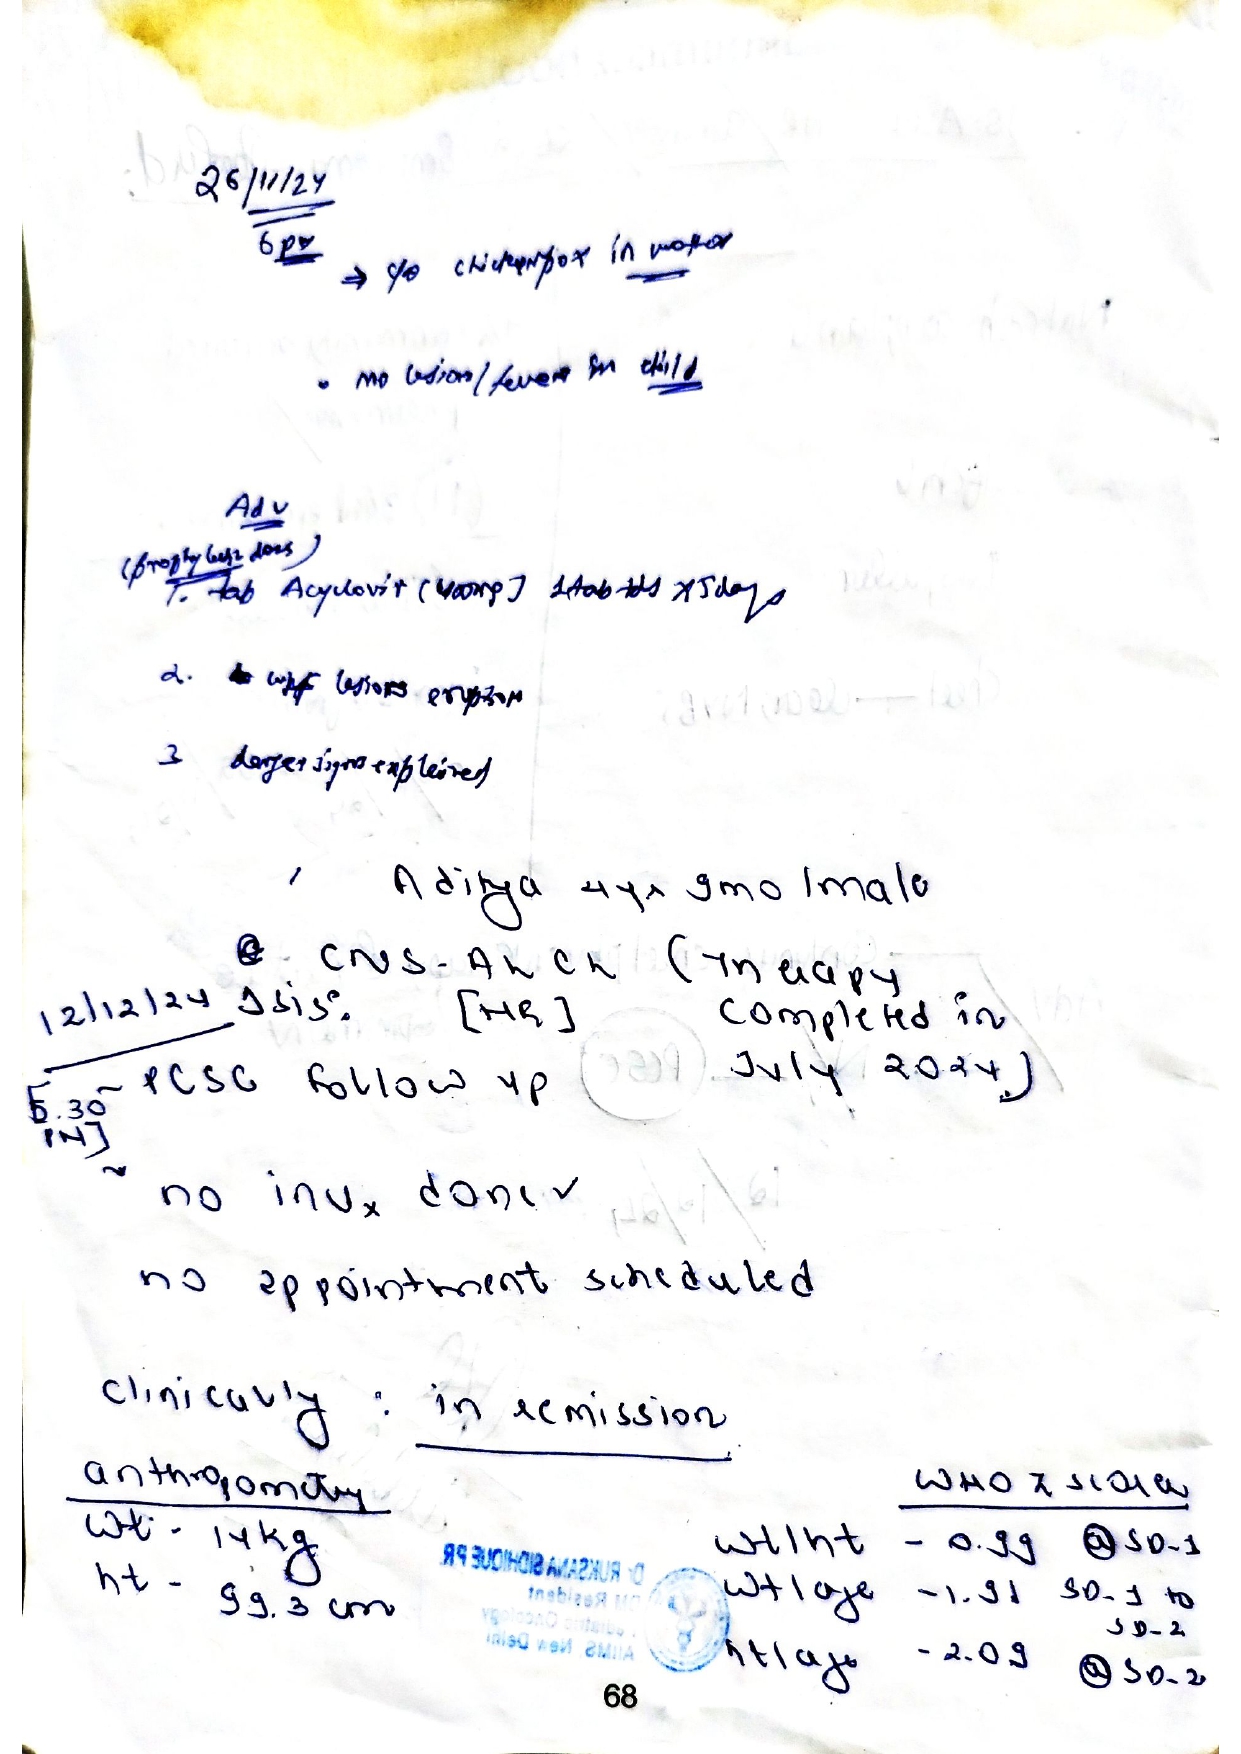 26/11/24
6 pm
⇒ c/o chickenpox in mother
• no lesion/fever in child
Adv
(prophylactic dose)
1. tab Acyclovir (400mg) 1tab x 5days
2. w/f lesions eruption
3 danger signs explained
Aditya 4yr 9mo/male
CNS-ALCL (Therapy
12/12/24 Isis: [HR] completed in
~ PCSG follow up July 2024)
[5.30
PM]
~ no invx done
no appointment scheduled
clinically : in remission
anthropometry WHO Z score
wt - 14kg wt/ht - 0.99 @ SD-1
ht - 99.3 cm wt/age -1.91 SD-1 to
SD-2
ht/age -2.09 @ SD-2
Dr RUKSANA SIDHIQUE PR
DM Resident
Pediatric Oncology
AIIMS, New Delhi
68